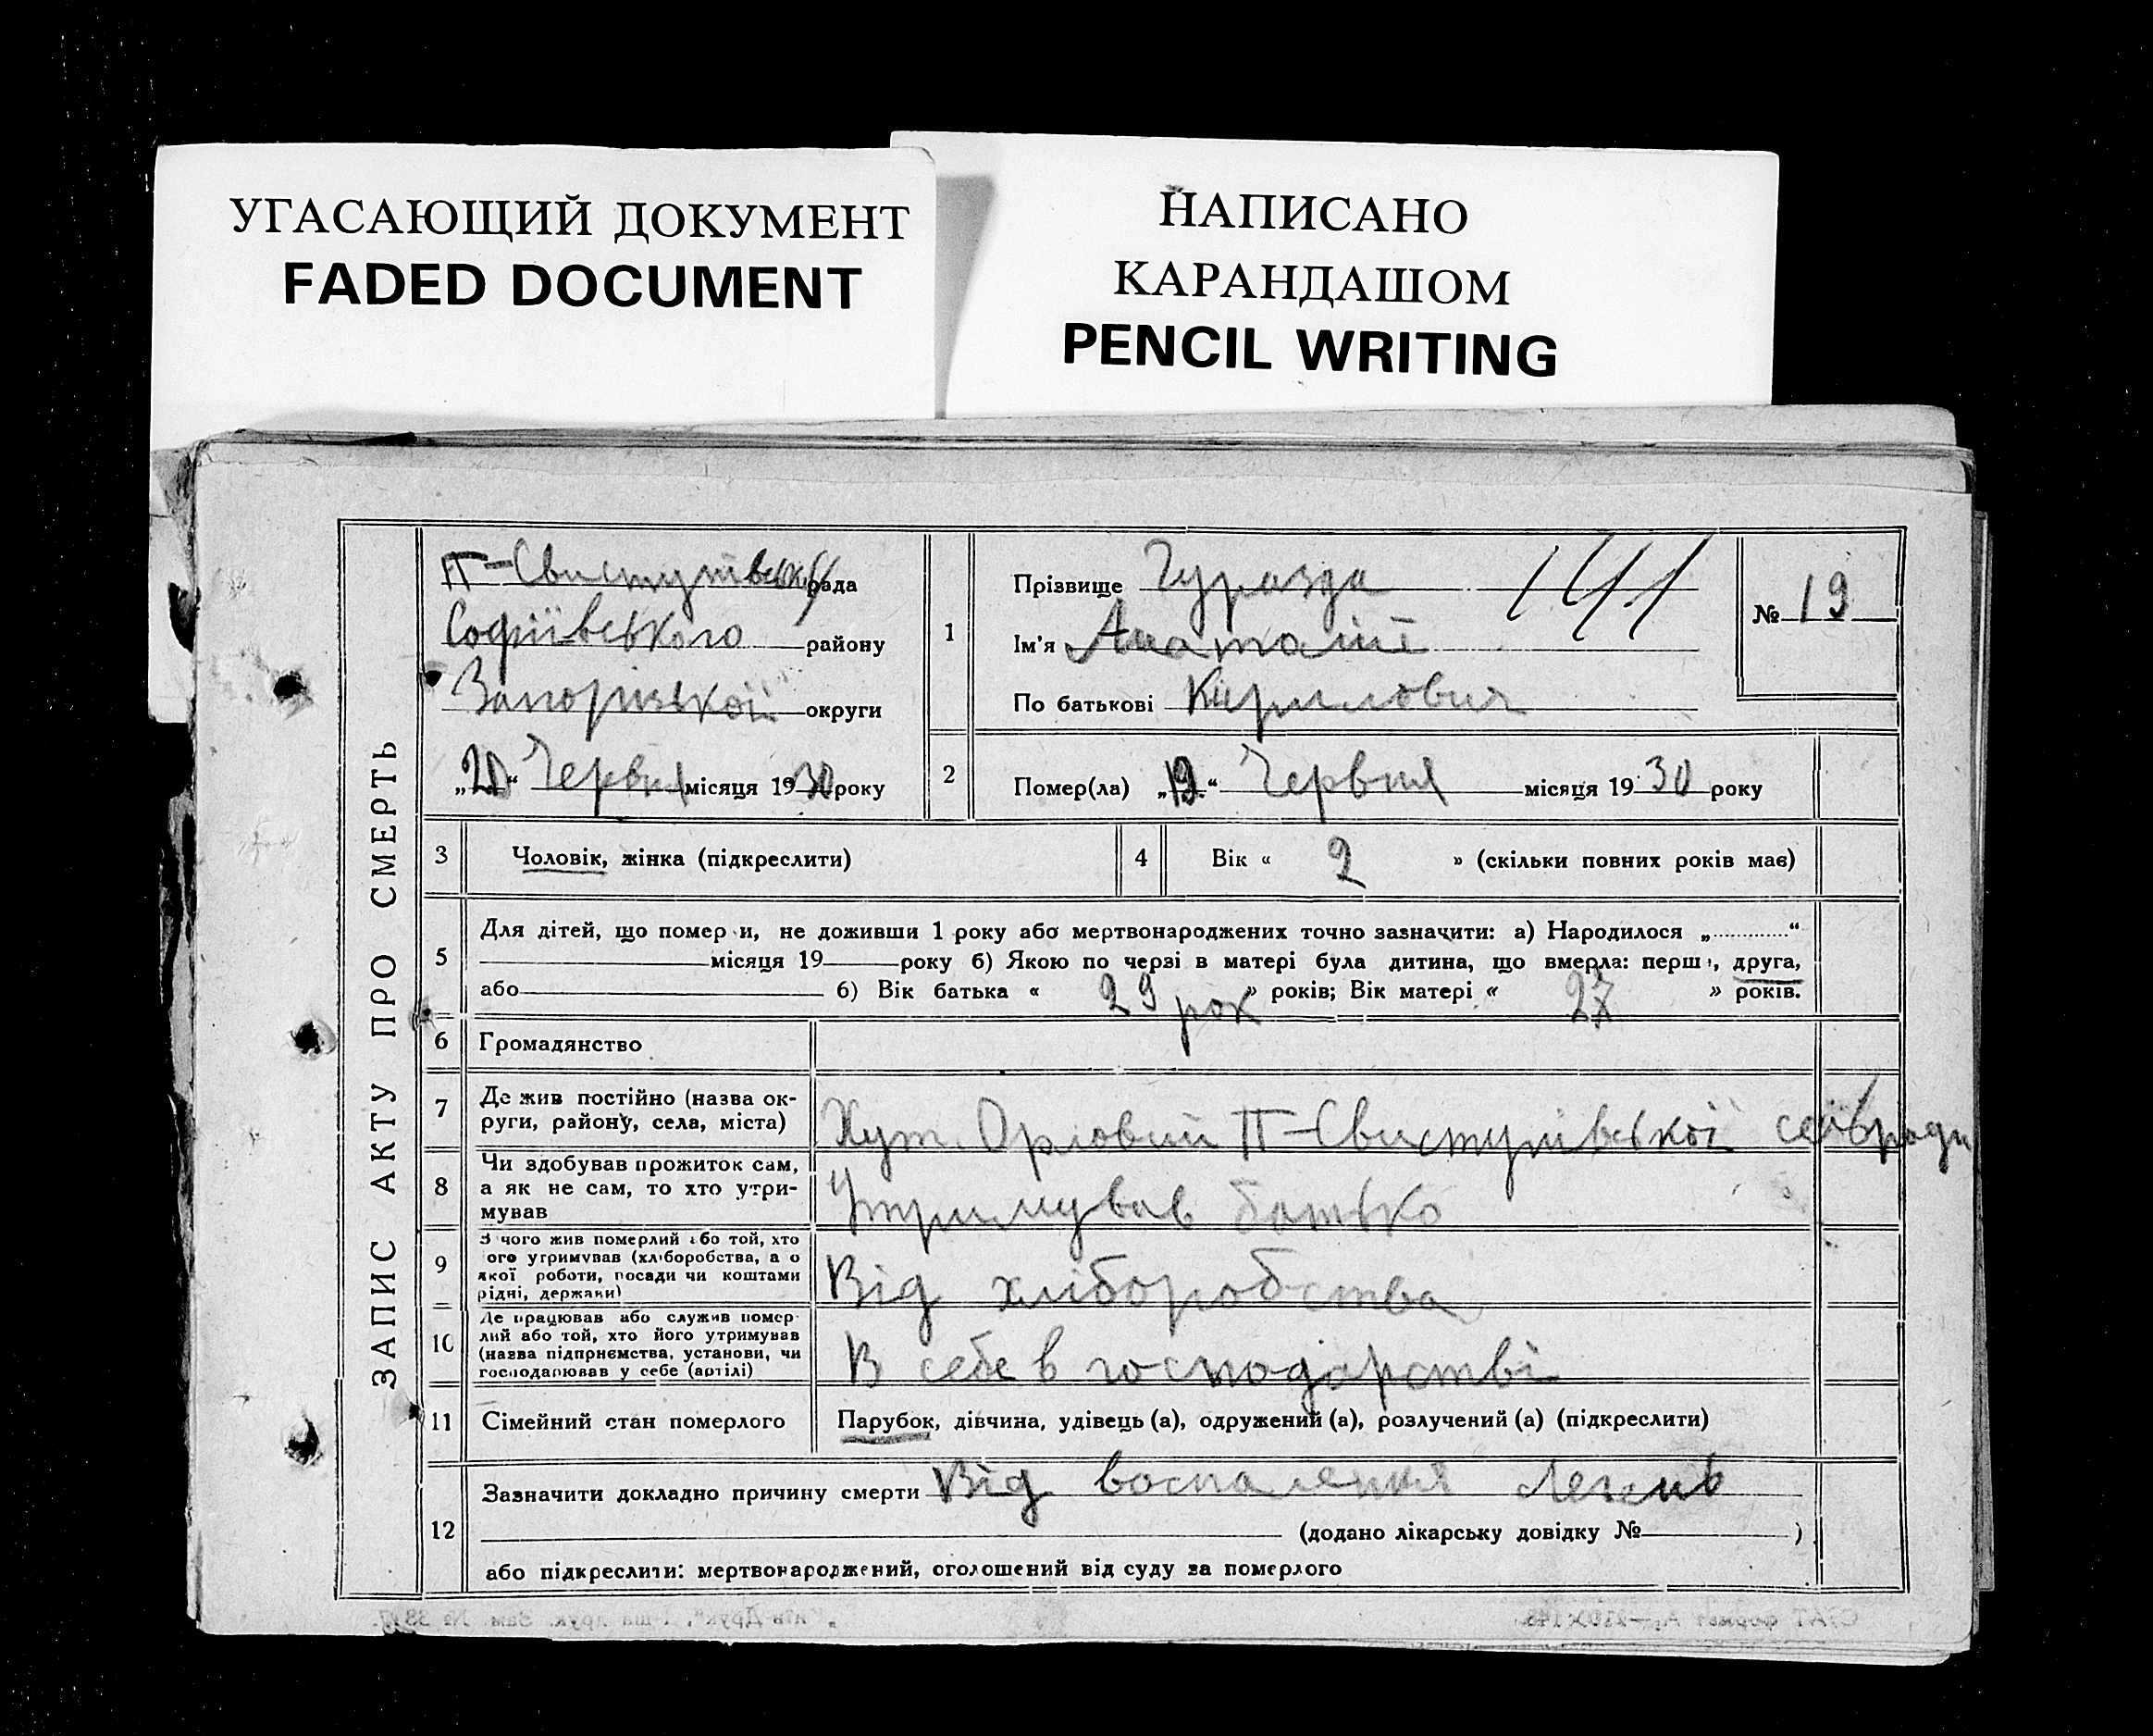 УГАСАЮЩИЙ ДОКУМЕНТ
FADED DOCUMENT
НАПИСАНО
КАРАНДАШОМ
PENCIL WRITING
ЗАПИС АКТУ ПРО СМЕРТЬ
П-Свистунівська рада
Софіївського району
Запорізької округи
„20“ Червня місяця 1930 року
1
Прізвище Гуразда 141
Ім'я Анатолій
По батькові Кирилович
№ 19
2 Помер(ла) „19“ Червня місяця 1930 року
3 Чоловік, жінка (підкреслити)
4 Вік « 2 » (скільки повних років має)
5 Для дітей, що помер и, не доживши 1 року або мертвонароджених точно зазначити: а) Народилося „ “
місяця 19 року б) Якою по черзі в матері була дитина, що вмерла: перш , друга,
або б) Вік батька « 29 рок » років; Вік матері « 27 » років.
6 Громадянство
7 Де жив постійно (назва ок-
руги, району, села, міста)
Хут. Орловий П-Свистунівської сельради
8 Чи здобував прожиток сам,
а як не сам, то хто утри-
мував
Утримував батько
9 З чого жив померлий або той, хто
ого утримував (хліборобства, а о
якої роботи, посади чи коштами
рідні, держави)
Від хліборобства
10 Де працював або служив помер-
лий або той, хто його утримував
(назва підприємства, установи, чи
господарював у себе (артілі)
В себе в господарстві
11 Сімейний стан померлого Парубок, дівчина, удівець (а), одружений (а), розлучений (а) (підкреслити)
12 Зазначити докладно причину смерти Від воспалення легень
(додано лікарську довідку № )
або підкреслити: мертвонароджений, оголошений від суду за померлого